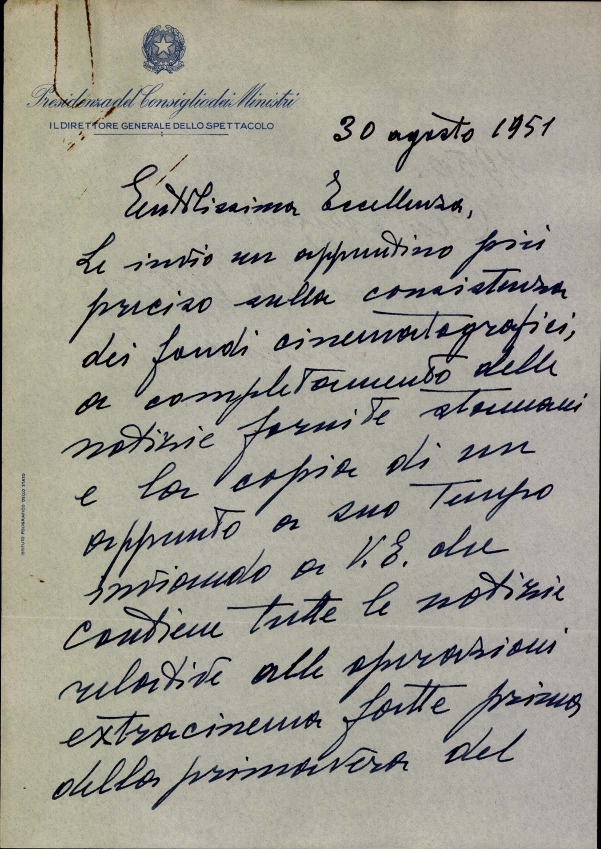 Presidenza del Consiglio dei Ministri
IL DIRETTORE GENERALE DELLO SPETTACOLO
30 agosto 1951
Gentilissima Eccellenza,
Le invio un appuntino più
preciso sulla consistenza
dei fondi cinematografici,
a completamento delle
notizie fornite stamani
e la copia di un
appunto a suo tempo
inviando a V.E. che
contiene tutte le notizie
relative alle operazioni
extracinema fatte prima
della primavera del
ISTITUTO POLIGRAFICO DELLO STATO